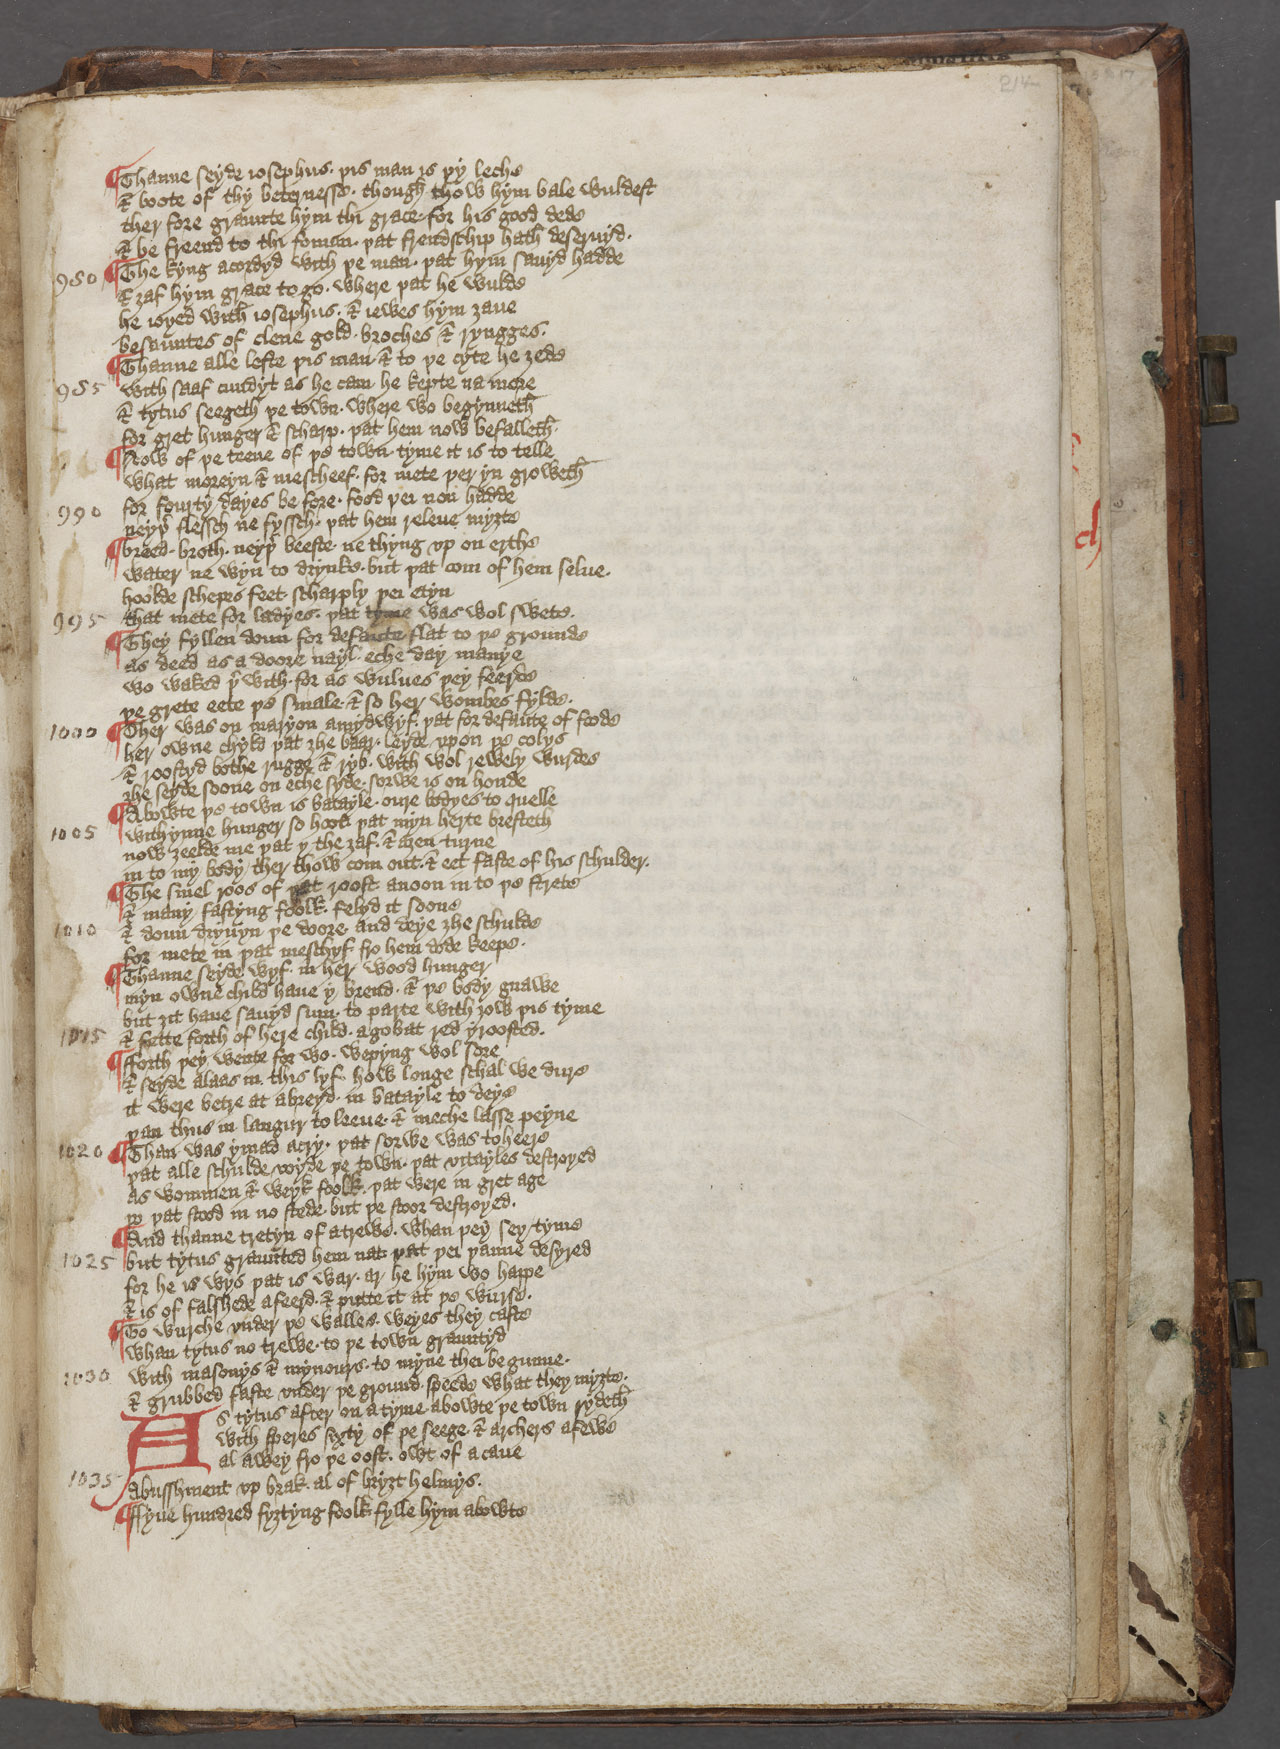 214
Thanne seyde iosephus· þis man is þy leche
& boote of thy beternesse· though thow hym bale wuldest
ther fore graunte hym thi grace· for his good dede
& be freend to thi foman· þat frendschip hath deseruyd·
980 The kyng acordyd with þe man· þat hym sauyd hadde
& ȝaf hym grace to go· where þat he wulde
he ioyed with iosephus· & iewes hym ȝaue
besauntes of clene gold· broches & ryngges·
Thanne alle lefte þis man· & to þe cyte he ȝede
985 with saaf cundyt as he cam he kepte na more
& tytus seegeth þe town· where wo begynneth
for gret hunger & scharp· þat hem now befalleth·
Now of þe teene of þe town· tyme it is to telle
what moreyn & mescheef· for mete þer yn groweth
990 for fourty dayes be fore· food þei non hadde
neyþ flessch ne fyssch· þat hem releue myȝte
breed· broth· neyþ beeste· ne thyng vp on erthe
water ne wyn to drynke· but þat com of hem selue·
hoolde schepes feet· scharply þei etyn
995 that mete for ladyes· þat tyme was wol swete·
They fyllen doun for defaute flat to þe grounde
as deed as a doore nayl· eche day manye
wo waked þ with· for as wulues þey feerde
þe grete eete þe smale· & so her wombes fylde·
1000 Ther was on maryon amydwyf· þat for defaute of foode
her owne chyld þat ȝhe baar· leyde vpon þe colys
& roostyd bothe rugge & ryb· with wol rewely wurdes
ȝhe seyde soone on eche syde· sorwe is on honde
Abowte þe town is batayle· oure bodyes to quelle
1005 withynne hunger so hoot· þat myn herte bresteth
now ȝeelde me þat y the ȝaf· & aȝen turne
in to my body· ther thow com out· & eet faste of his schulder·
The smel roos of þat roost· anoon in to þe strete
& many fastyng foolk· felyd it soone
1010 & doun dryuyn þe doore· and deye ȝhe schulde
for mete in þat meschyf· fro hem dede keepe·
Thanne seyde wyf· in her wood hunger
myn owne child haue y brend· & þe body gnawe
but ȝit haue sauyd sum· to parte with ȝow þis tyme
1015 & fette forth of here child· a gobat red yroosted·
Fforth þey wente for wo· wepyng wol sore
& seyde alaas in this lyf· how longe schal we dure
it were betre at abreyd· in batayle to deye
þan thus in langur to leeue· & meche lasse peyne
1020 Than was ymad a cry· þat sorwe was to heere
þat alle schulde voyde þe town· þat vitayles destroyed
as wommen & weyk foolk· þat were in gret age
þo þat stood in no stede· but þe stoor destroyed·
And thanne tretyn of a trewe· whan þey sey tyme
1025 but tytus graunted hem nat· þat þei þanne desyred
for he is wys þat is war· ar he hym wo happe
& is of falshede afeerd· & putte it at þe wurse·
To wurche vnder þe walles· weyes they caste
whan tytus no trewe· to þe town grauntyd
1030 with masonys & mynours· to myne thei begunne·
& grubbed faste vnder þe ground· speede what they myȝte·
As tytus after on a tyme· abowte þe town rydeth
with speres sixty of þe seege· & archers a fewe
al awey fro þe oost· owt of a caue
1035 abusshment vp brak· al of bryȝt helmys·
Ffyue hundred fyȝtyng foolk fylle hym abowte